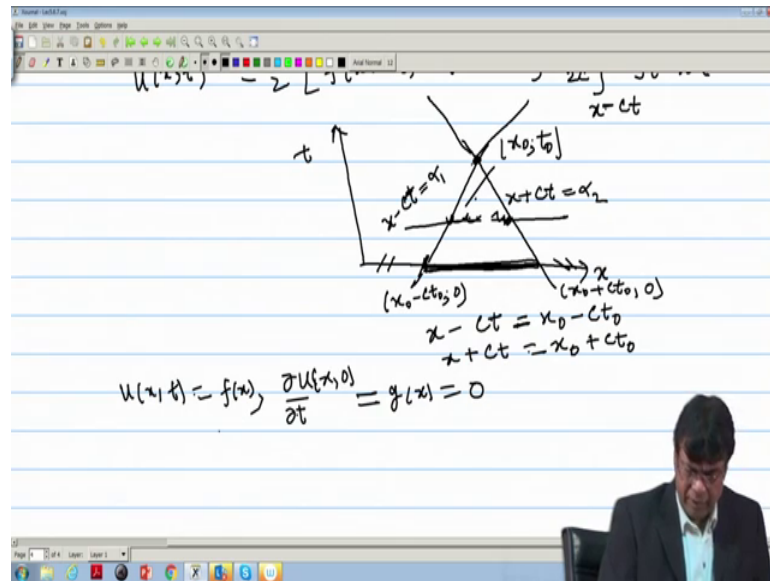 Xournal - Lec5.6.7.xoj
File Edit View Page Tools Options Help
Arial Normal 12
u(x,t) = 1/2 [ f(x
2c
x-ct
t
[x0, t0]
x-ct=α1
x+ct=α2
x
(x0-ct0, 0)
(x0+ct0, 0)
x - ct = x0 - ct0
x + ct = x0 + ct0
u(x,t) = f(x), ∂u(x,0)/∂t = g(x) = 0
Page 4 of 4 Layer: Layer 1